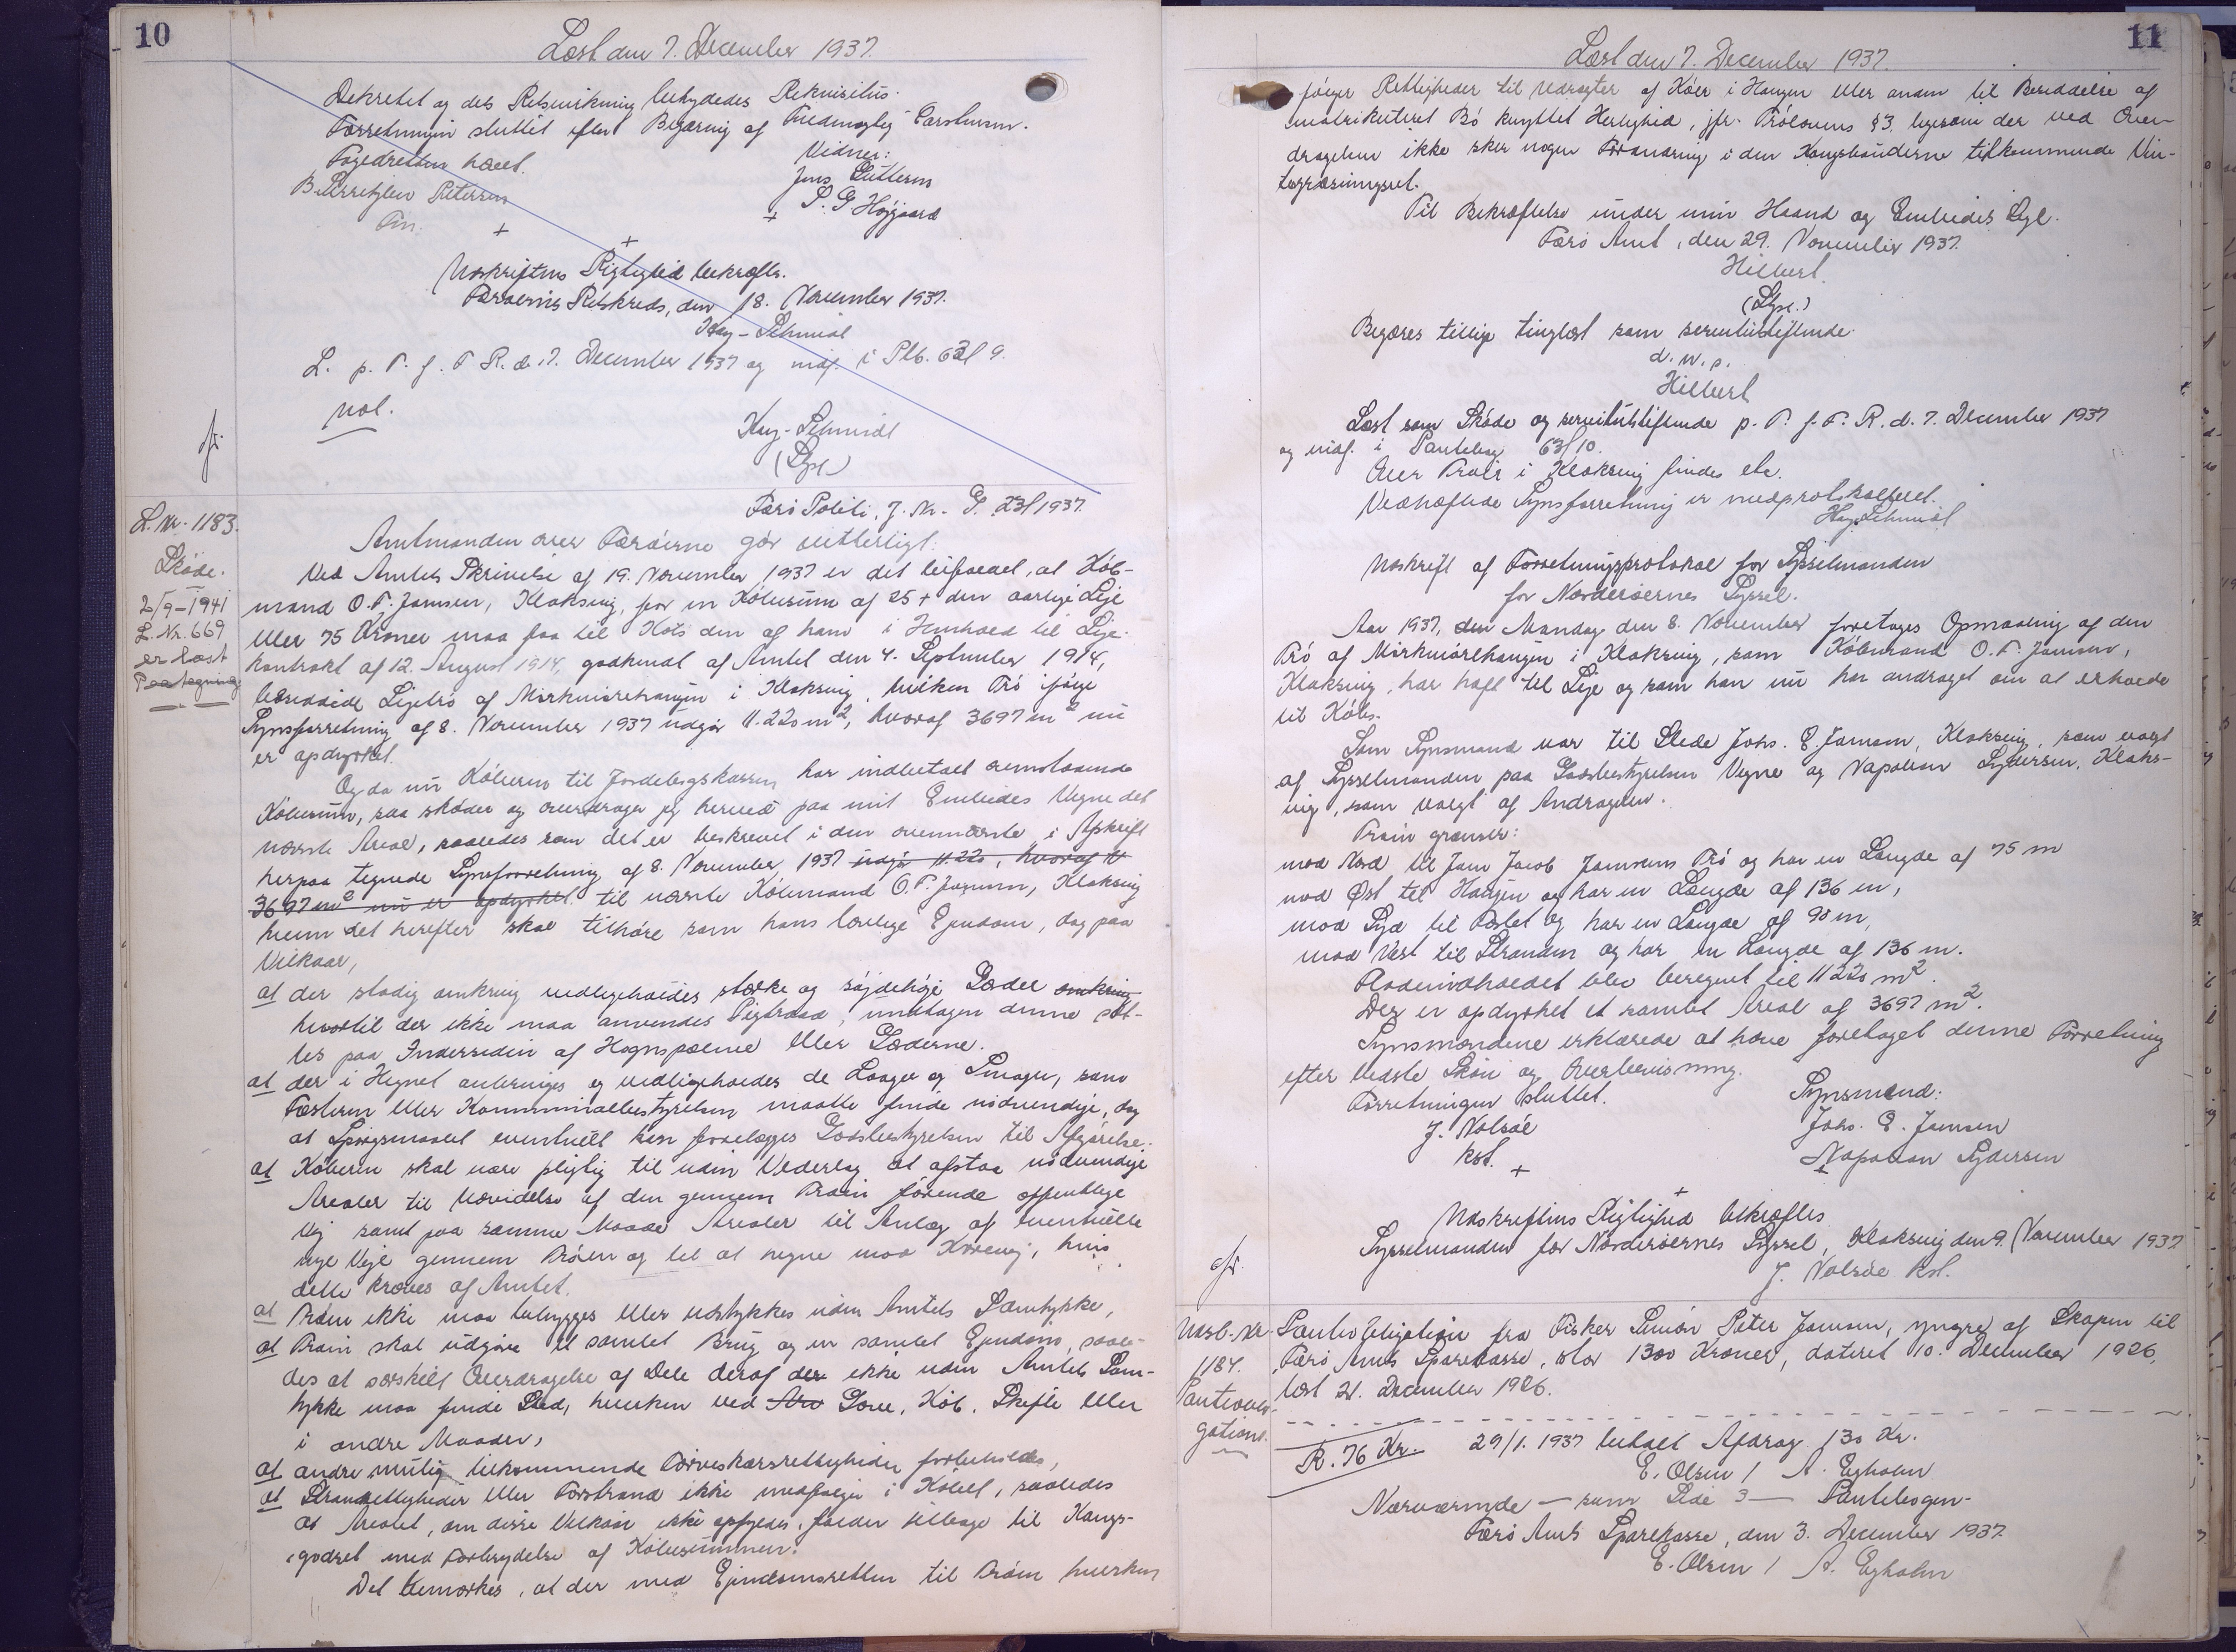 10
Læst den 7. December 1937.
Dekretet og dets Retsvirkning betydedes Rekvisitus.
Forretningen sluttet efter Begæring af Fuldmægtig Carstensen.
Fogedretten hævet.
Vidner:
Jens
S. G. Højgaard
Udskriftens Rigtighed bekræftes.
Færøernes Retskreds, den 18. November 1937.
Kay-Schmidt
L. p. T. f. F. R. d. 7. December 1937 og indf. i Ptb. 63/ 9.
Kay-Schmidt
(Sgl.)
Færø Politi, J. Nr. G. 23/1937.
L. Nr. 1183.
Skøde.
2/9-1941
L. Nr. 669
er læst
Paategning
Amtmanden over Færøerne gør vitterligt:
Ved Amtets Skrivelse af 19. November 1937 er det bifaldet, at Køb-
mand O. F. Joensen, Klaksvig, for en Købesum af 25 × den aarlige Leje
eller 75 Kroner maa faa til Købs den af ham i Henhold til Leje-
kontrakt af 12. August 1914, godkendt af Amtet den 4. September 1914,
besiddede Lejetrø af Mørkniørehaugen i Klaksvig, hvilken Trø ifølge
Synsforretning af 8. November 1937 udgør 11.220 m², hvoraf 3697 m² nu
er opdyrket.
Og da nu Køberen til Jordebogskassen har indbetalt ovenstaaende
Købesum, saa skøder og overdrager jeg herved paa mit Embedes Vegne det
nævnte Areal, saaledes som det er beskrevet i den ovennævnte i Afskrift
herpaa tegnede Synsforretning af 8. November 1937 udgør 11.220, hvoraf
3697 m² nu er opdyrket til nævnte Købmand O. F. Joensen, Klaksvig
hvem det herefter skal tilhøre som hans lovlige Ejendom, dog paa
Vilkaar,
at der stadig omkring vedligeholdes stærke og søjdehøje Gærder omkring
hvortil der ikke maa anvendes Pigtraad, undtagen denne sæt-
tes paa Indersiden af Hegnspælene eller Gærderne.
at der i Hegnet anbringes og vedligeholdes de Laager og Smuger, som
Fæsteren eller Kommunalbestyrelsen maatte finde nødvendige, dog
at Spørgsmaalet eventuelt kan forelægges Godsbestyrelsen til Afgørelse.
at Køberen skal være pligtig til uden Vederlag at afstaa nødvendige
Arealer til Udvidelse af den gennem Trøen førende offentlige
Vej samt paa samme Maade Arealer til Anlæg af eventuelle
nye Veje gennem Trøen og til at hegne mod Kørevej, hvis
dette kræves af Amtet.
at Trøen ikke maa bebygges eller udstykkes uden Amtets Samtykke,
at Trøen skal udgøre et samlet Brug og en samlet Ejendom, saale-
des at særskilt Overdragelse af Dele deraf der ikke uden Amtets Sam-
tykke maa finde Sted, hverken ved Arv Gave, Køb, Skifte eller
i andre Maader,
at andre mulig tilkommende Tørveskærsrettigheder forbeholdes,
at Strandrettigheder eller Forstrand ikke medfølger i Købet, saaledes
at Arealet, om disse Vilkaar ikke opfyldes, falder tilbage til Kongs-
godset med Fortrydelse af Købesummen.
Det bemærkes, at der med Ejendomsretten til Trøen hverken
11
Læst den 7. December 1937.
følger Rettigheder til Udrøgter af Køer i Haugen eller anden til Besiddelse af
matrikuleret Bø knyttet Herlighed, jfr. Trølovens § 3, ligesom der ved Over-
dragelsen ikke sker nogen Forandring i den Kongsbønderne tilkommende Vin-
tergræsningsret.
Til Bekræftelse under min Haand og Embedets Segl.
Færø Amt, den 29. November 1937.
Hilbert
(Sgl.)
Begæres tillige tinglæst som servitutstiftende.
d. u. s.
Hilbert
Læst som Skøde og servitutstiftende p. T. f. F. R. d. 7. December 1937
og indf. i Pantebog 63/10.
Over Trøer i Klaksvig findes ete.
Vedhæftede Synsforretning er medprotokolleret.
Kay-Schmidt
Udskrift af Forretningsprotokol for Sysselmanden
for Norderøernes Syssel.
Aar 1937, den Mandag den 8. November foretages Opmaaling af den
Trø af Mørkniørehaugen i Klaksvig, som Købmand O. F. Joensen,
Klaksvig, har haft til Leje og som han nu har andraget om at erholde
til Købs.
Som Synsmænd var til Stede Johs. E. Joensen, Klaksvig, som valgt
af Sysselmanden paa Godsbestyrelsen Vegne og Napoleon Sydersen, Klaks-
vig, som valgt af Andrageren.
Trøen grænser:
mod Nord til Joen Jacob Joensens Trø og har en Længde af 75 m
mod Øst til Haugen og har en Længde af 136 m,
mod Syd til Fæstet og har en Længde af 90 m,
mod Vest til Stranden og har en Længde af 136 m.
Fladeindholdet blev beregnet til 11220 m².
Der er opdyrket et samlet Areal af 3697 m².
Synsmændene erklærede at have foretaget denne Forretning
efter bedste Skøn og Overbevisning.
Forretningen sluttet.
Synsmænd:
J. Nolsøe
kst.
Johs. E. Joensen
Napoleon Sydersen
Udskriftens Rigtighed bekræftes
Sysselmanden for Norderøernes Syssel, Klaksvig den 9. November 1937
J. Nolsøe kst.
Udsl. Nr.
1184.
Pantinobli-
gations.
Panteobligation fra Fisker Simon Peter Joensen, yngre af Skopen til
Færø Amts Sparekasse, stor 1300 Kroner, dateret 10. December 1926,
læst 21. December 1926.
R. 76 Kr. 29/1. 1937 betalt Afdrag 130 Kr.
E. Olsen / A. Egholm
Nærværende — sam Side 3 — Pantebogen-
Færø Amts Sparekasse, den 3. December 1937.
E. Olsen / A. Egholm